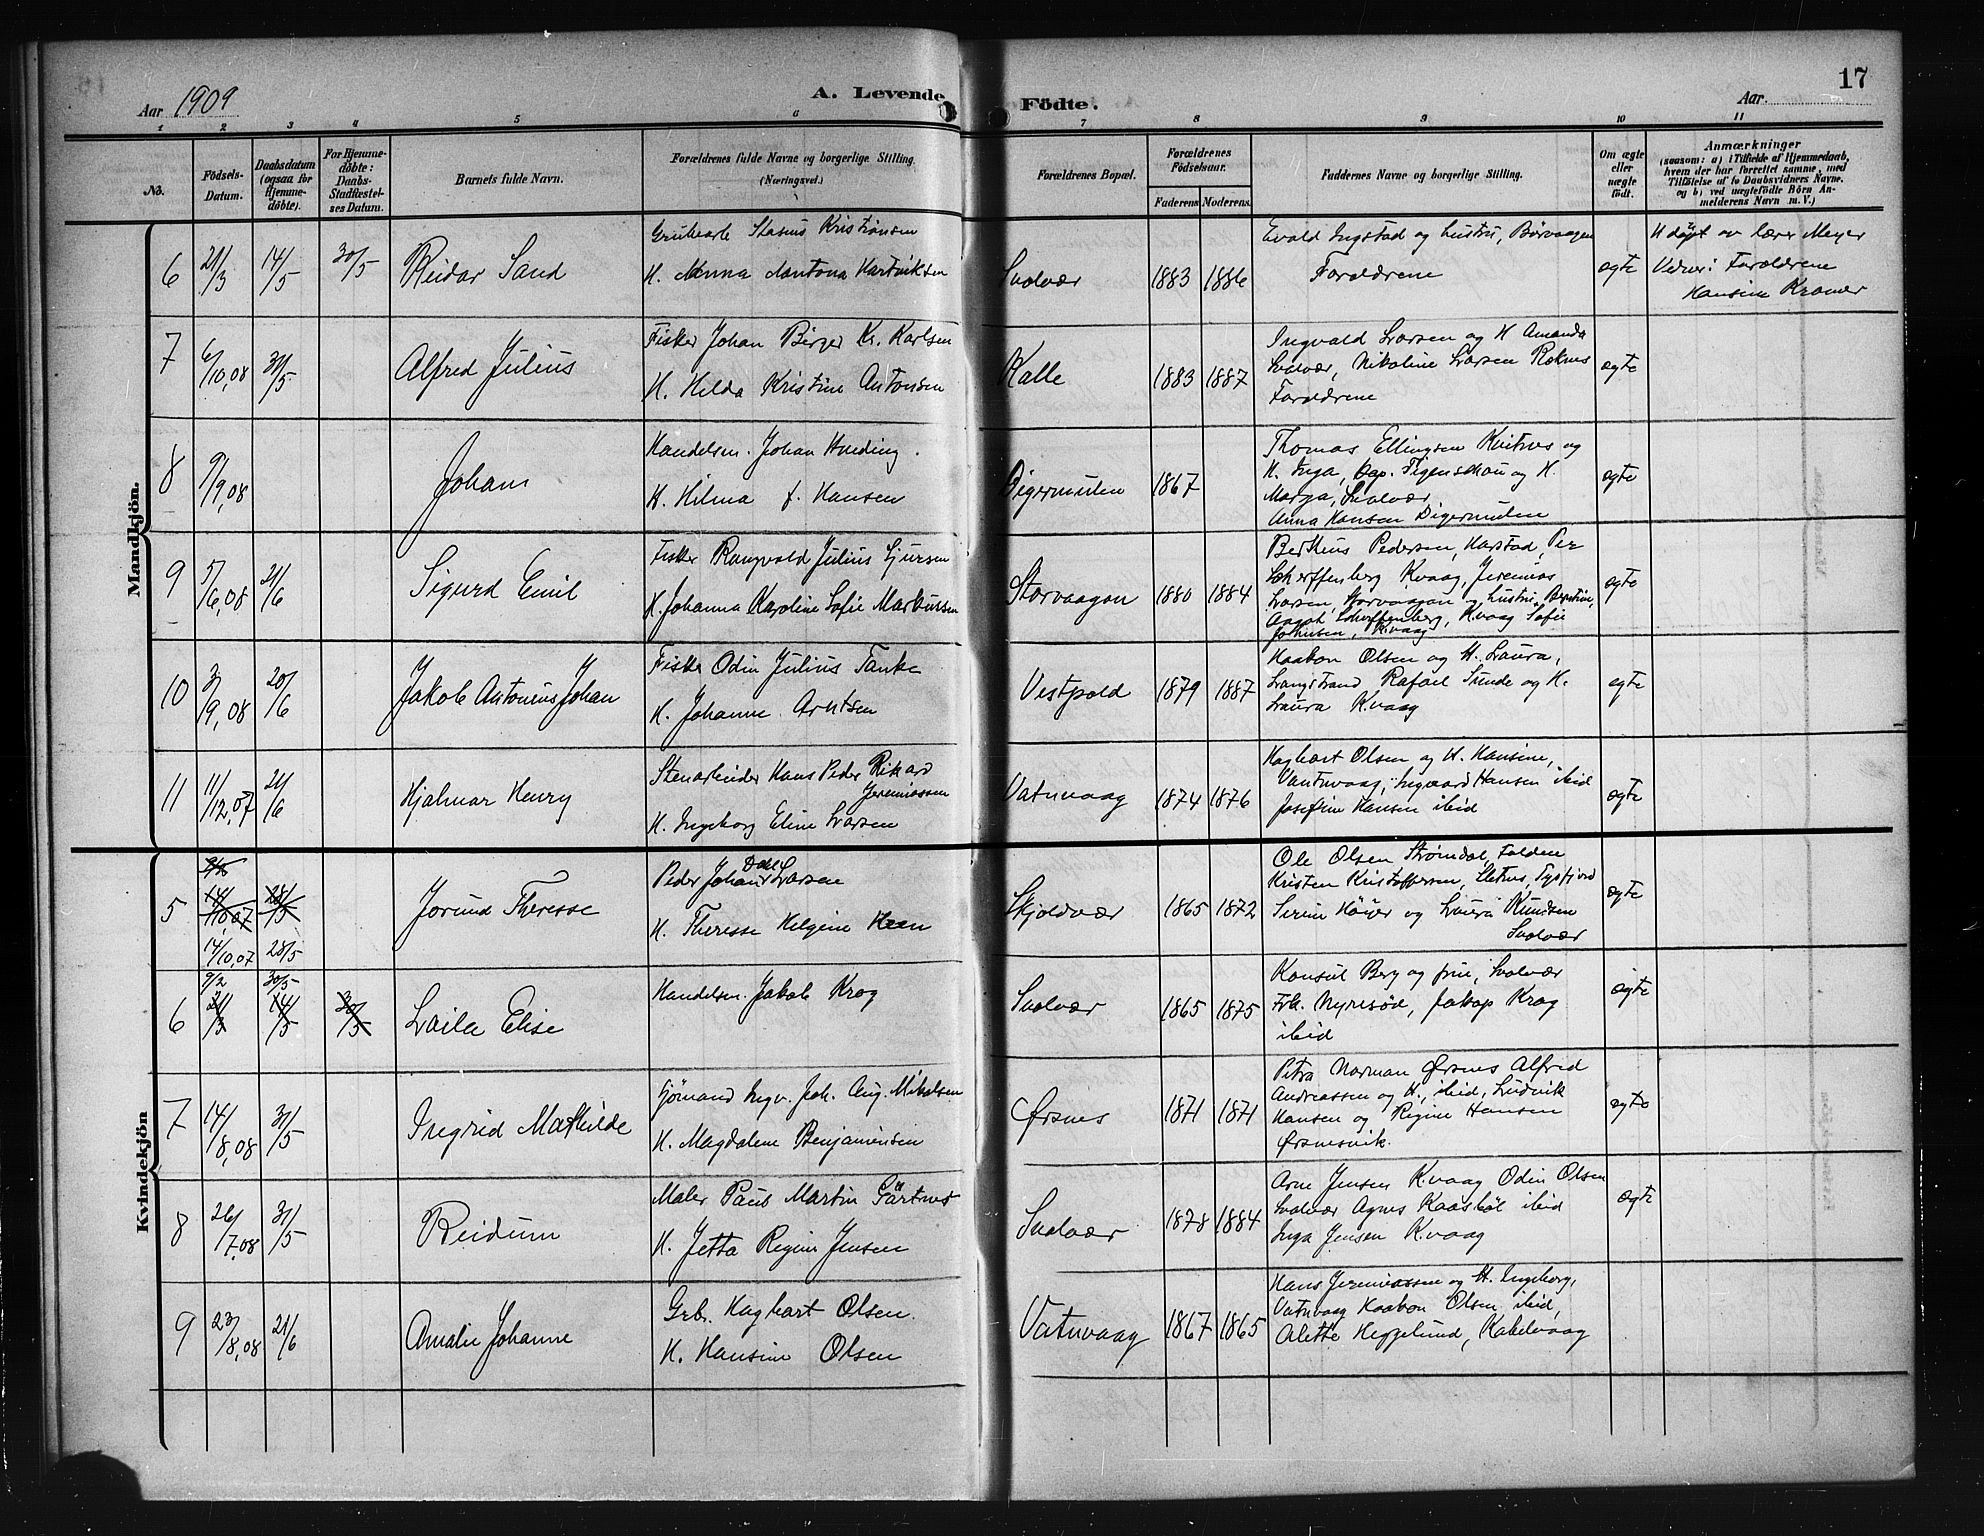 Aar 1909
A. Levende
Födte.
Aar.
17
1 2 3 4 5 6 7 8 9 10 11
No.
Födsels-
Datum.
Daabsdatum
(ogsaa for
Hjemme-
døbte).
For Hjemme-
døbte:
Daabs-
Stadfæstel-
ses Datum.
Barnets fulde Navn.
Forældrenes fulde Navne og borgerlige Stilling.
(Næringsvei.)
Forældrenes Bopæl.
Forældrenes
Fødselsaar.
Faderens Moderens.
Faddernes Navne og borgerlige Stilling.
Om ægte
eller
uægte
födt.
Anmærkninger
(saasom: a) i Tilfælde af Hjemmedaab,
hvem der har forrettet samme, med
Tilføielse af to Daabsvidners Navne.
og b) ved uægtefödte Börn An-
melderens Navn m. V.)
Mandkjön.
6 21/3 14/5 30/5 Reidar Sand
Grubearb Stasius Kristiansen
H. Anna Antona Hartviksen
Svolvær 1883 1886
Evald Ingstad og hustru, Børvaagen
Forældrene
ægte
H døpt av lærer Meyer
Vidner: Forældrene
Hansine Kramer
7 6/10,08 30/5 Alfred Julius
Fisker Johan Birger Kr. Karlsen
H. Hilda Kristine Antonsen
Kalle 1883 1887
Ingvald Larsen og H Amanda
Svolvær, Nikoline Larsen Røknes
Forældrene
ægte
8 9/9,08 Johan
Handelsm. Johan Hveding.
H. Hilma f. Hansen
Digermulen 1867
Thomas Ellingsen Kvitnes og
H. Inga, Figenschau og H.
Marga, Svolvær
Anna Hansen Digermulen
ægte
9 5/6,08 21/6 Sigurd Emil
Fisker Rangvald Julius Sjursen
H. Johanna Karoline Sofie Markussen
Storvaagan 1880 1884
Bertheus Pedersen, Harstad, Per
Scherffenberg Kvaag, Jeremias
Larsen, Storvaagan og hustru Bergtine,
Aagot Scherffenberg, Kvaag Sofie
Johnsen, Kvaag
ægte
10 3/9,08 20/6 Jakob Antonius Johan
Fisker Odin Julius Tanke
H. Johanne Arntsen
Vestpold 1879 1887
Haakon Olsen og H. Laura,
Langstrand Rafael Sunde og H.
Laura Kvaag
ægte
11 11/12,07 21/6 Hjalmar Henry
Stenarbeider Hans Peder Rikard
Jeremiassen
H. Ingeborg Eline Larsen
Vatnvaag 1874 1876
Hagbart Olsen og H. Hansine,
Vatnvaag, Ingvard Hansen ibid
Josefine Hansen ibid
ægte
Kvindekjön
5 14/10,07 28/5 Jorund Theresse
14/10,07 28/5
Peder Johan Dahl Larsen
H. Theresse Helgine Keen
Skjoldvær 1865 1872
Ole Olsen Strømdal, Folden
Kristen Kristoffersen, Sletnes, Tysfjord
Serine Høyer og Laura Knudsen
Svolvær
ægte
9/2 30/5
6 21/3 14/5 30/5 Laila Elise
Handelsm. Jakob Krog
Svolvær 1865 1875
Konsul Berg og frue, Svolvær
Frk. Nyresød, Jakop Krog
ibid
ægte
7 14/8,08 31/5 Ingrid Mathilde
Sjømand Ingv. Joh. Aug. Mikalsen
H. Magdalene Benjaminsen
Ørsnes 1871 1871
Petra Norman Ørsnes Alfred
Andreassen og H., ibid, Ludvik
Hansen og Regine Hansen
Ørsnesvik.
ægte
8 26/7,08 31/5 Reidun
Maler Paul Martin Gärtner
H. Jetta Regine Jensen
Svolvær 1878 1884
Arne Jensen Kvaag Odin Olsen
Svolvær Agnes Kaasbøl ibid
Inga Jensen Kvaag
ægte
9 23/8,08 21/6 Amalie Johanne
Grb. Hagbart Olsen.
H. Hansine Olsen
Vatnvaag 1867 1865
Hans Jeremiassen og H. Ingeborg,
Vatnvaag Haakon Olsen ibid,
Alette Heggelund, Kabelvaag